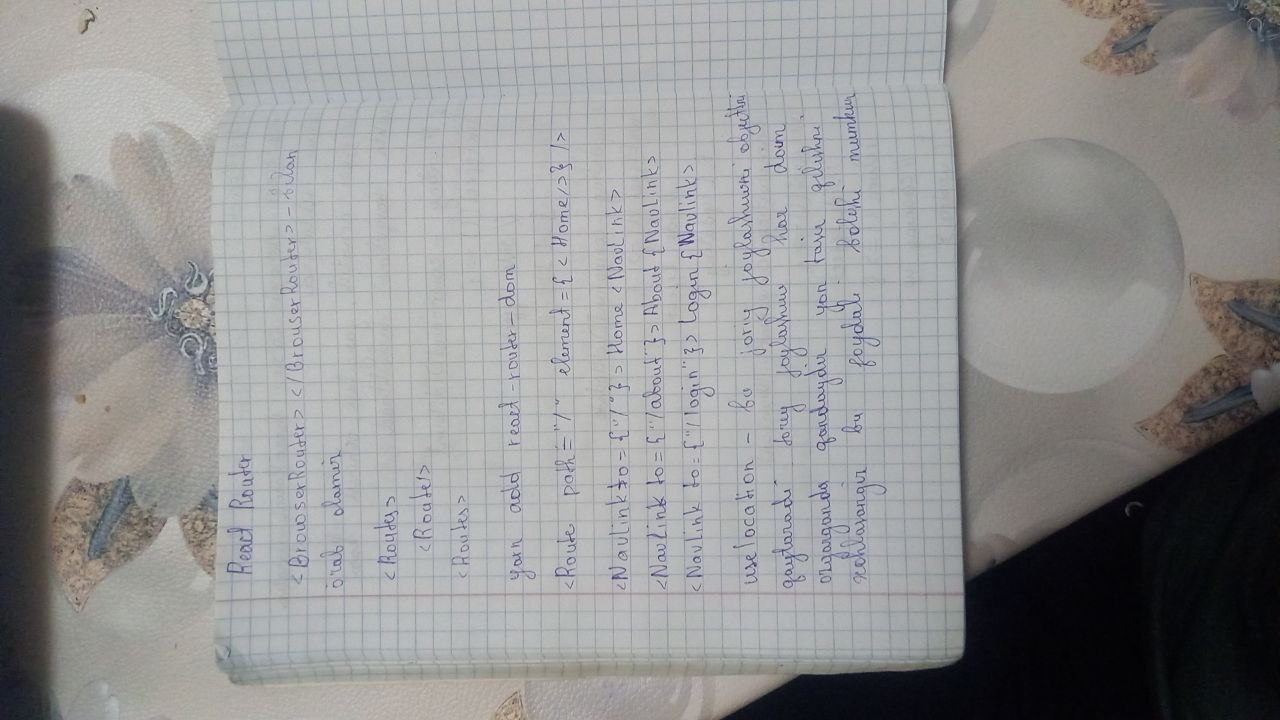 React Router
<BrowserRouter> </BrowserRouter> - bilan
o'rab olamiz
<Routes>
<Route/>
<Routes>
yarn add react-router-dom
<Route path="/" element={<Home/>} />
<NavLink to={"/"}> Home <NavLink>
<NavLink to={"/about"}> About {NavLink>
<NavLink to={"/login"}> Login {NavLink>
useLocation - bu joriy joylashuvni obyektni
qaytaradi joriy joylashuv har doim
o'zgarganda qandaydir yon tasir qilishni
xohlasangiz bu foydali bo'lishi mumkin